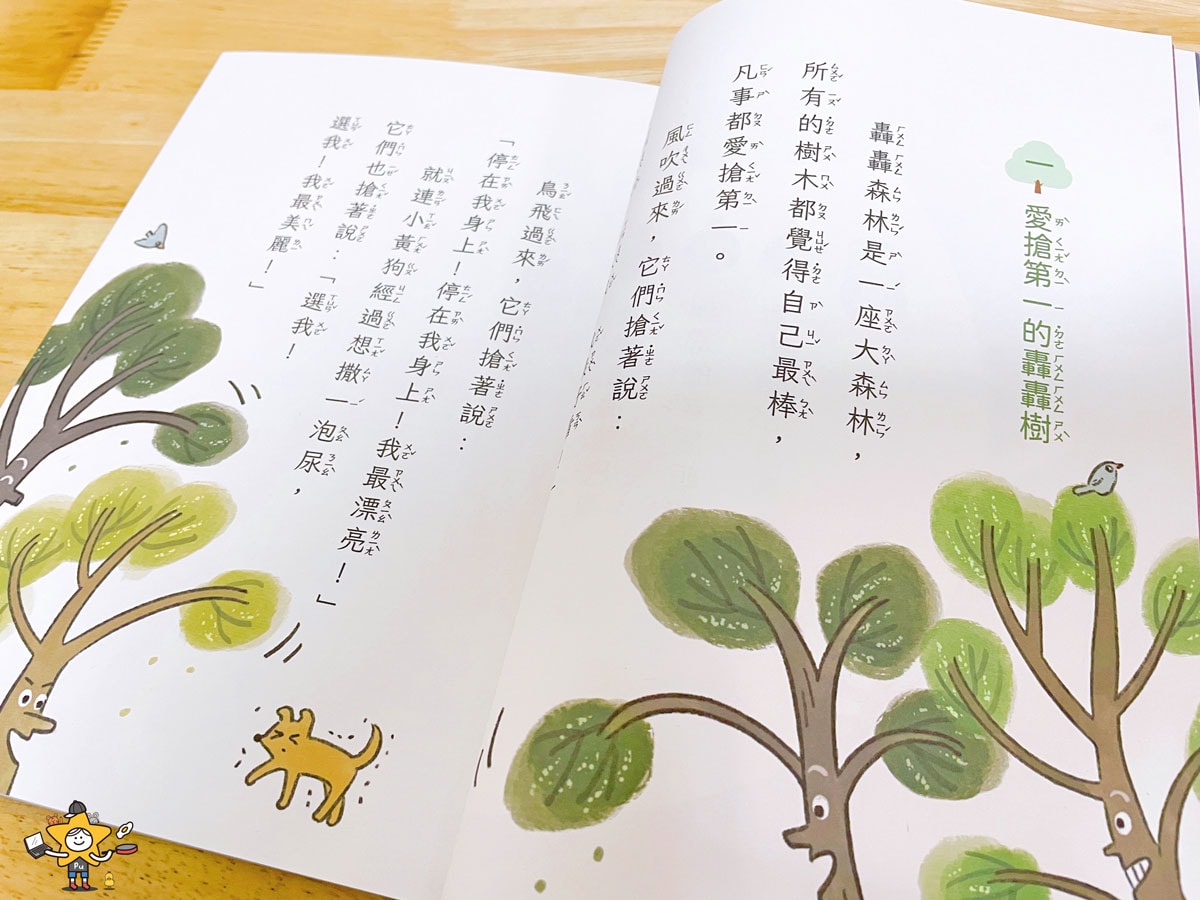 一
愛搶第一的轟轟樹
轟轟森林是一座大森林，
所有的樹木都覺得自己最棒，
凡事都愛搶第一。
風吹過來，它們搶著說：
鳥飛過來，它們搶著說：
「停在我身上！停在我身上！我最漂亮！」
就連小黃狗經過想撒一泡尿，
它們也搶著說：「選我！
選我！我最美麗！」
Pu